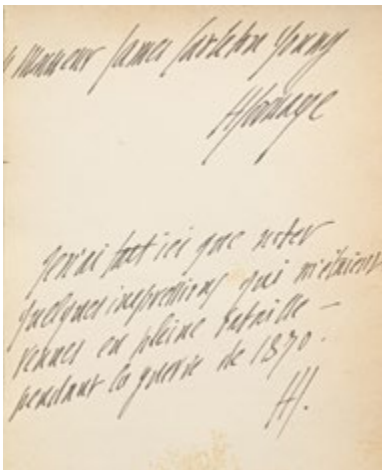 Monsieur James Carleton Young
Hommage
Je n'ai fait ici que noter
quelques impressions qui m'étaient
venues en pleine bataille —
pendant la guerre de 1870.